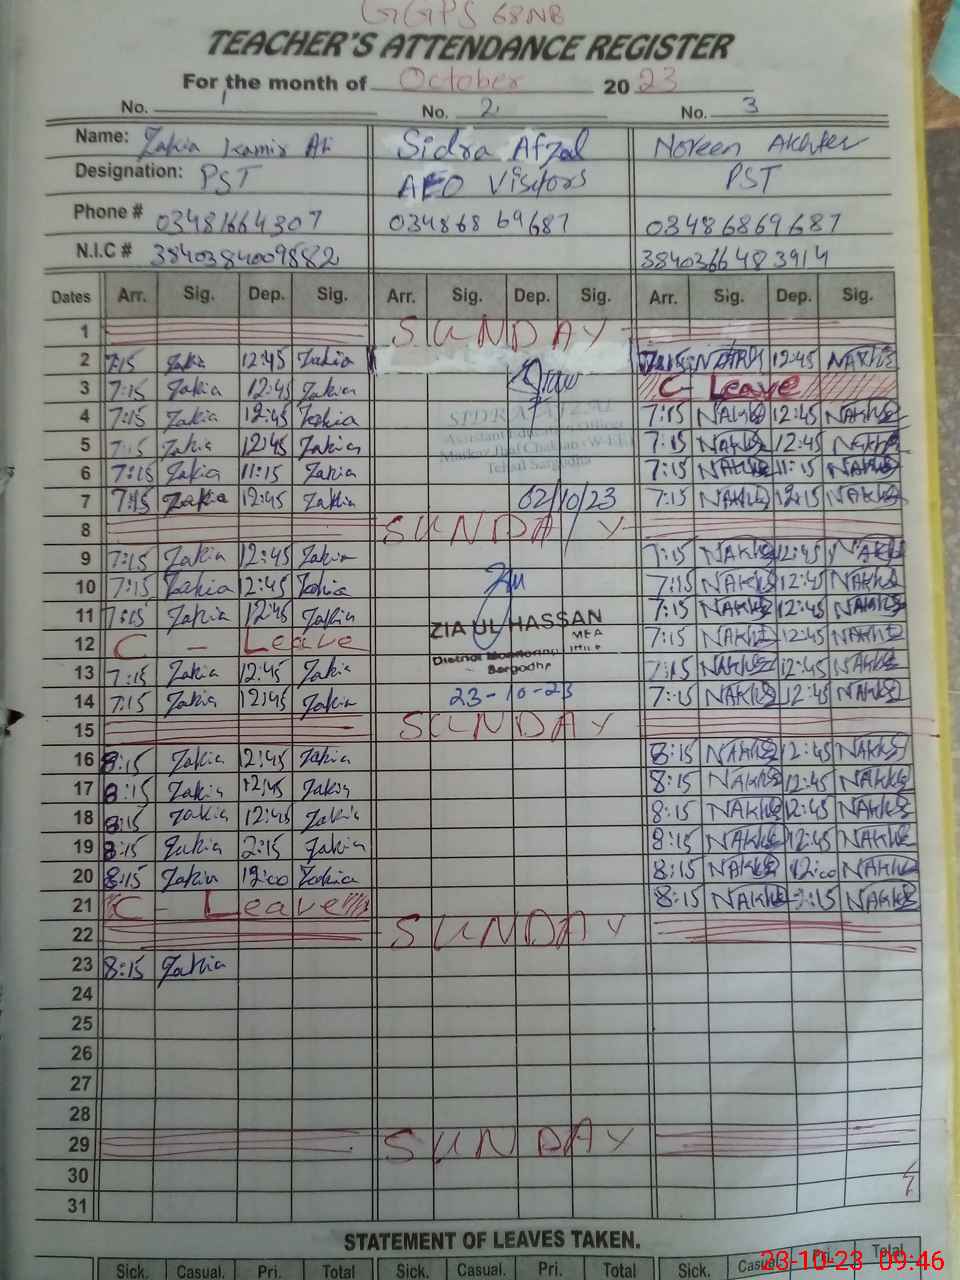 GGPS 68NB
TEACHER'S ATTENDANCE REGISTER
For the month of October 2023
No. 1 No. 2 No. 3
Name: Zakia Ali Sidra Afzal Noreen Akhter
Designation: PST AEO Visitors PST
Phone # 03481664307 03486869687 03486869687
N.I.C # 3840384009882 3840366483914
Dates Arr. Sig. Dep. Sig. Arr. Sig. Dep. Sig. Arr. Sig. Dep. Sig.
1 SUNDAY
2 7:15 Zakia 12:45 Zakia 7:15 12:45
3 7:15 Zakia 12:45 Zakia C- Leave
4 7:15 Zakia 12:45 Zakia SIDRA AFZAL 7:15 12:45
5 7:15 Zakia 12:45 Zakia Assistant Education Officer 7:15 12:45
Markaz Chakian (W-EE)
6 7:15 Zakia 11:15 Zakia Tehsil Sargodha 7:15 11:15
7 7:15 Zakia 12:45 Zakia 02/10/23 7:15 12:15
8 SUNDAY
9 7:15 Zakia 12:45 Zakia 7:15 12:45
10 7:15 Zakia 12:45 Zakia 7:15 12:45
11 7:15 Zakia 12:45 Zakia ZIA UL HASSAN 7:15 12:45
MEA
12 C - Leave District Monitoring 7:15 12:45
13 7:15 Zakia 12:45 Zakia Sargodha 7:15 12:45
14 7:15 Zakia 12:45 Zakia 23-10-23 7:15 12:45
15 SUNDAY
16 8:15 Zakia 12:45 Zakia 8:15 12:45
17 8:15 Zakia 12:45 Zakia 8:15 12:45
18 8:15 Zakia 12:45 Zakia 8:15 12:45
19 8:15 Zakia 2:15 Zakia 8:15 12:45
20 8:15 Zakia 12:00 Zakia 8:15 12:00
21 C - Leave 8:15 2:15
22 SUNDAY
23 8:15 Zakia
24
25
26
27
28
29 SUNDAY
30
31
STATEMENT OF LEAVES TAKEN.
Sick. Casual. Pri. Total Sick. Casual. Pri. Total Sick. Casual. Pri. Total
23-10-23 09:46